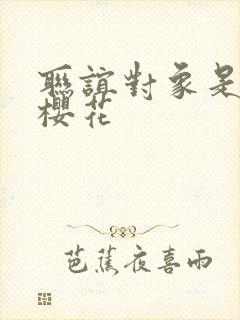 聯誼對象是
櫻花
芭蕉夜喜雨